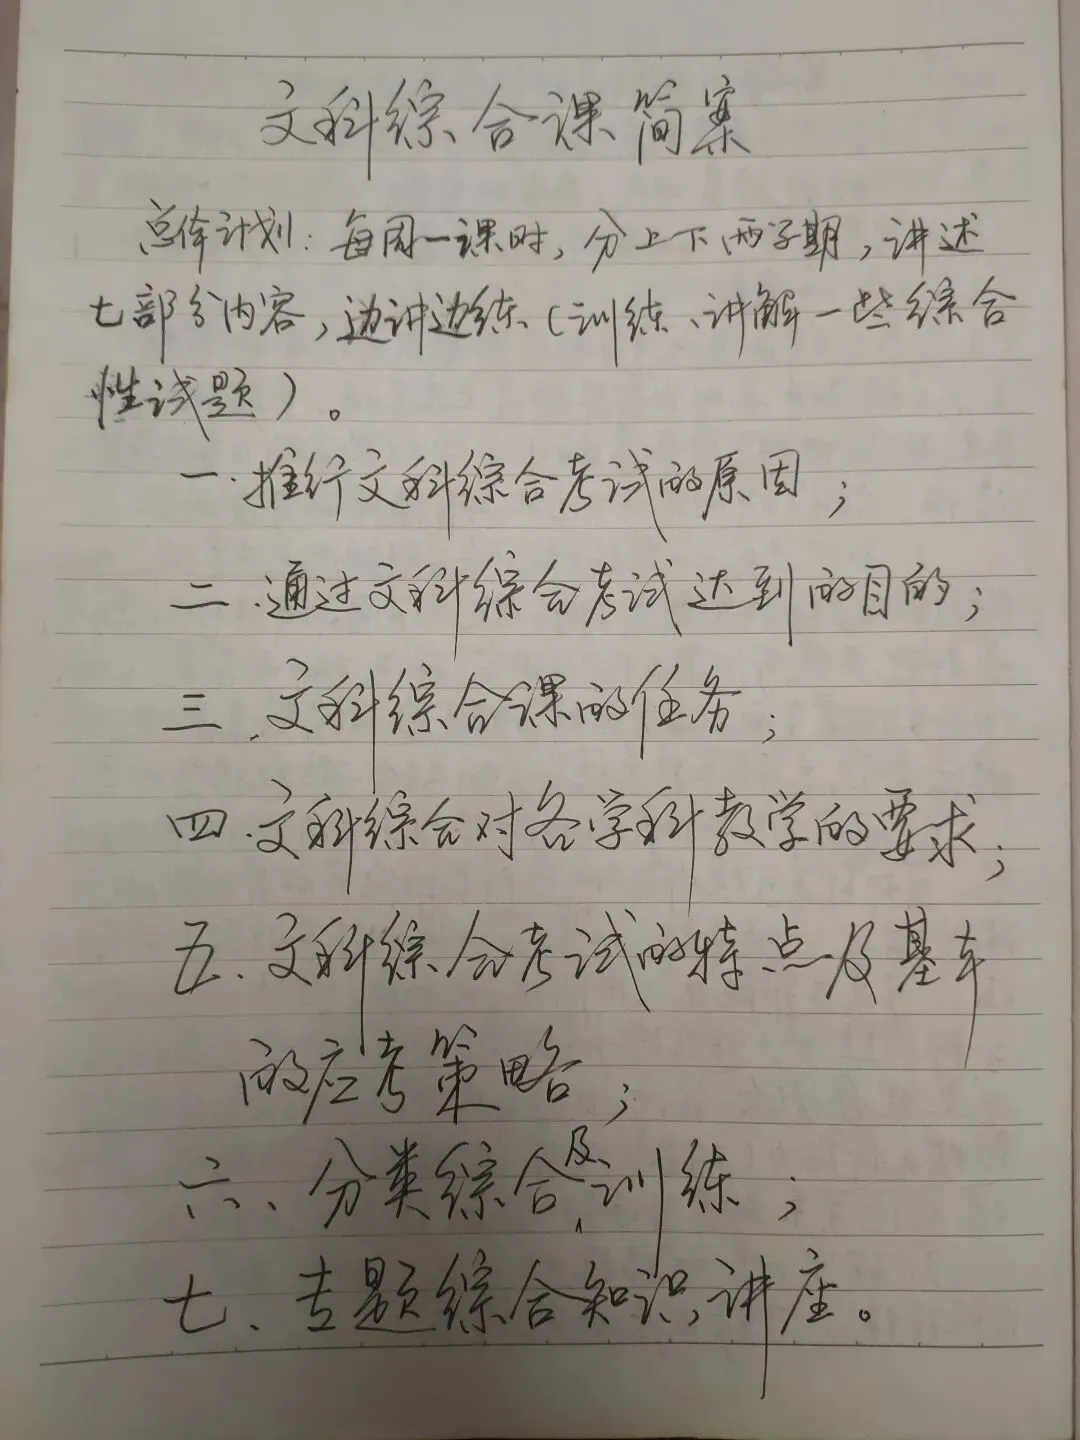 文科综合课简案
总体计划：每周一课时，分上下两学期，讲述
七部分内容，边讲边练（训练、讲解一些综合
性试题）。
一．推行文科综合考试的原因；
二．通过文科综合考试达到的目的；
三．文科综合课的任务；
四．文科综合对各学科教学的要求；
五、文科综合考试的特点及基本
的应考策略；
六、分类综合及训练；
七、专题综合知识讲座。